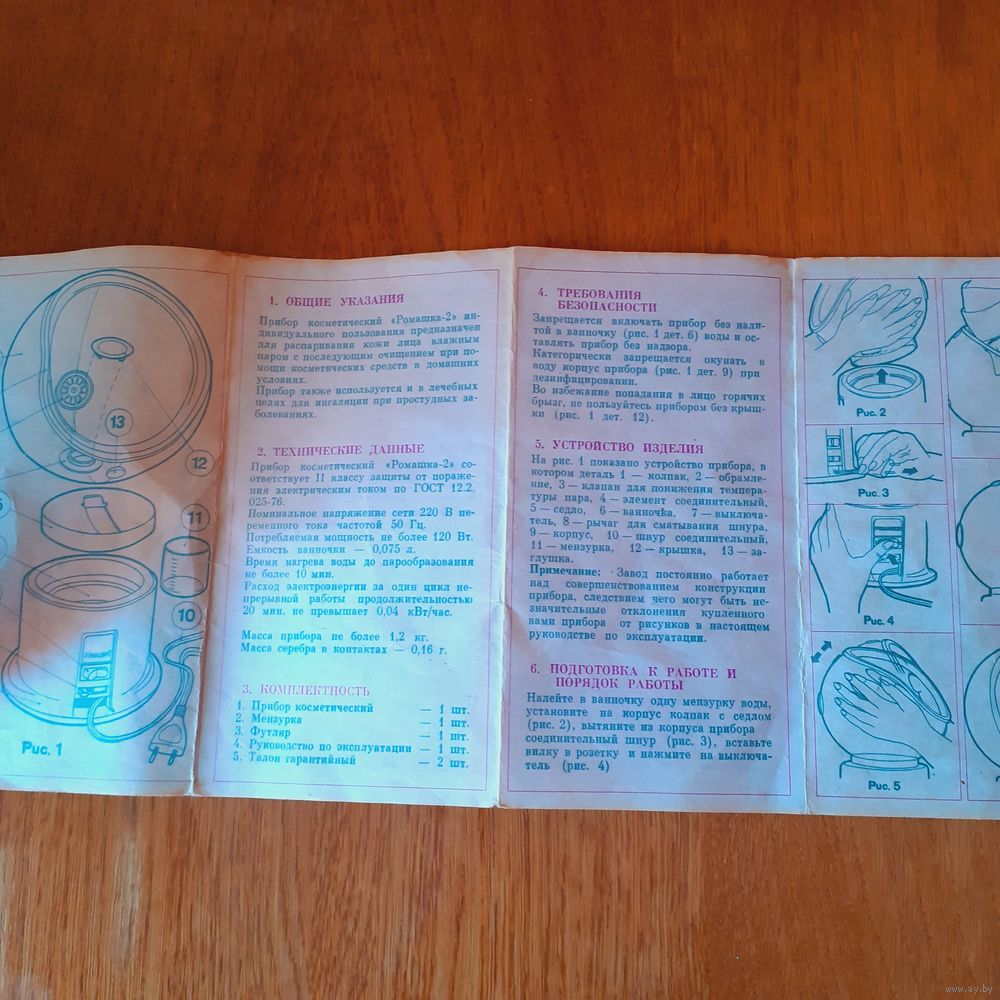 13
12
11
10
Рис. 1
1. ОБЩИЕ УКАЗАНИЯ
Прибор косметический «Ромашка-2» ин-
дивидуального пользования предназначен
для распаривания кожи лица влажным
паром с последующим очищением при по-
мощи косметических средств в домашних
условиях.
Прибор также используется и в лечебных
целях для ингаляции при простудных за-
болеваниях.
2. ТЕХНИЧЕСКИЕ ДАННЫЕ
Прибор косметический «Ромашка-2» со-
ответствует II классу защиты от пораже-
ния электрическим током по ГОСТ 12.2.
025-76.
Номинальное напряжение сети 220 В пе-
ременного тока частотой 50 Гц.
Потребляемая мощность не более 120 Вт.
Емкость ванночки — 0,075 л.
Время нагрева воды до парообразования
не более 10 мин.
Расход электроэнергии за один цикл не-
прерывной работы продолжительностью
20 мин. не превышает 0,04 кВт/час.
Масса прибора не более 1,2 кг.
Масса серебра в контактах — 0,16 г.
3. КОМПЛЕКТНОСТЬ
1. Прибор косметический — 1 шт.
2. Мензурка — 1 шт.
3. Футляр — 1 шт.
4. Руководство по эксплуатации — 1 шт.
5. Талон гарантийный — 2 шт.
4. ТРЕБОВАНИЯ
БЕЗОПАСНОСТИ
Запрещается включать прибор без нали-
той в ванночку (рис. 1 дет. 6) воды и ос-
тавлять прибор без надзора.
Категорически запрещается окунать в
воду корпус прибора (рис. 1 дет. 9) при
дезинфицировании.
Во избежание попадания в лицо горячих
брызг, не пользуйтесь прибором без крыш-
ки (рис. 1 дет. 12).
5. УСТРОЙСТВО ИЗДЕЛИЯ
На рис. 1 показано устройство прибора, в
котором деталь 1 — колпак, 2 — обрамле-
ние, 3 — клапан для понижения темпера-
туры пара, 4 — элемент соединительный,
5 — седло, 6 — ванночка, 7 — выключа-
тель, 8 — рычаг для сматывания шнура,
9 — корпус, 10 — шнур соединительный,
11 — мензурка, 12 — крышка, 13 — за-
глушка.
Примечание: Завод постоянно работает
над совершенствованием конструкции
прибора, следствием чего могут быть не-
значительные отклонения купленного
вами прибора от рисунков в настоящем
руководстве по эксплуатации.
6. ПОДГОТОВКА К РАБОТЕ И
ПОРЯДОК РАБОТЫ
Налейте в ванночку одну мензурку воды,
установите на корпус колпак с седлом
(рис. 2), вытяните из корпуса прибора
соединительный шнур (рис. 3), вставьте
вилку в розетку и нажмите на выключа-
тель (рис. 4)
Рис. 2
Рис. 3
Рис. 4
Рис. 5
www.ay.by